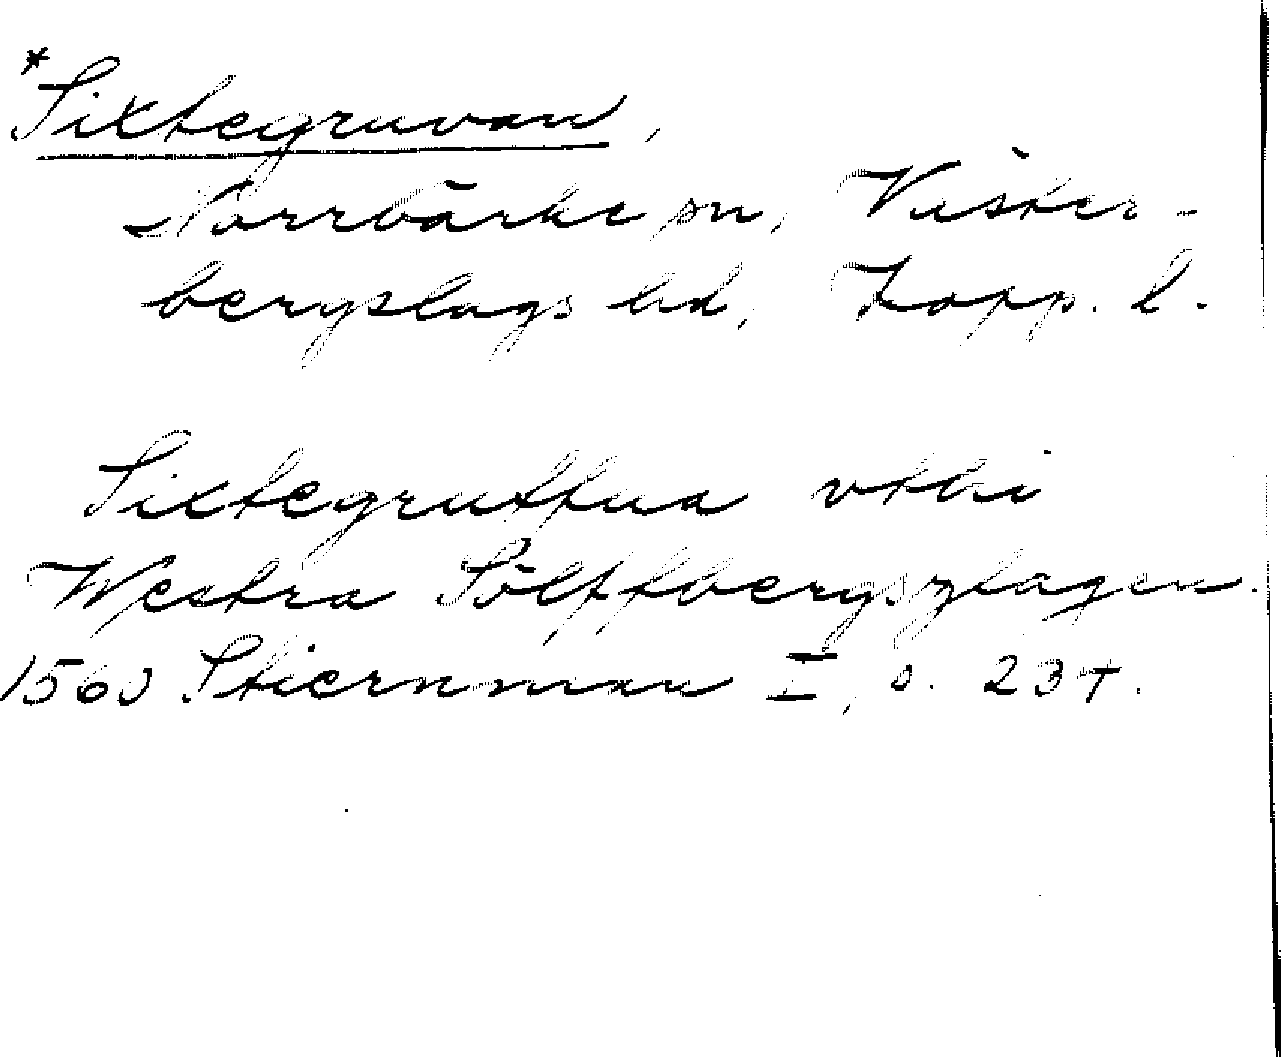 *Sixtegruvan,
Norrbärke sn, Väster-
bergslags hd, Kopp. l.
Sixtegruffua vthi
Westra Sölffbergszlagen.
1560 Stiernman I, s. 234.